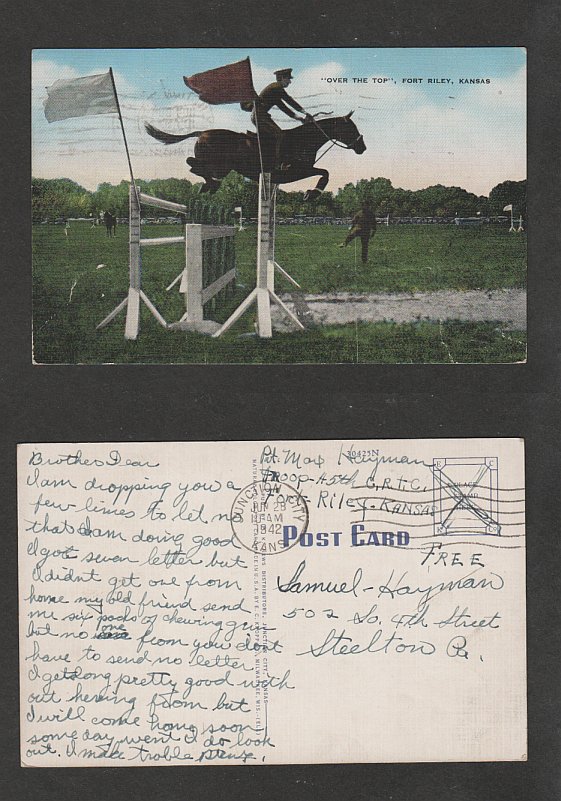 "OVER THE TOP", FORT RILEY, KANSAS
Brother Dear
I am dropping you a
few lines to let no
that I am doing good
I got seven letter but
I didnt get one from
home my old friend send
me six packs of chewing gum
but no one from you dont
have to send no letter.
I get along pretty good with
out hering from but
I will come home soon
some day went it do look
out. I make troble
Pvt. Max Hayman
Troop-A 5th C.R.T.C.
Fort-Riley-Kansas
30425N
PLACE STAMP HERE
JUNCTION CITY
JUN 23
10 AM
1942
KANS
POST CARD
FREE
Samuel-Hayman
502 So. 4th Street
Steelton Pa.